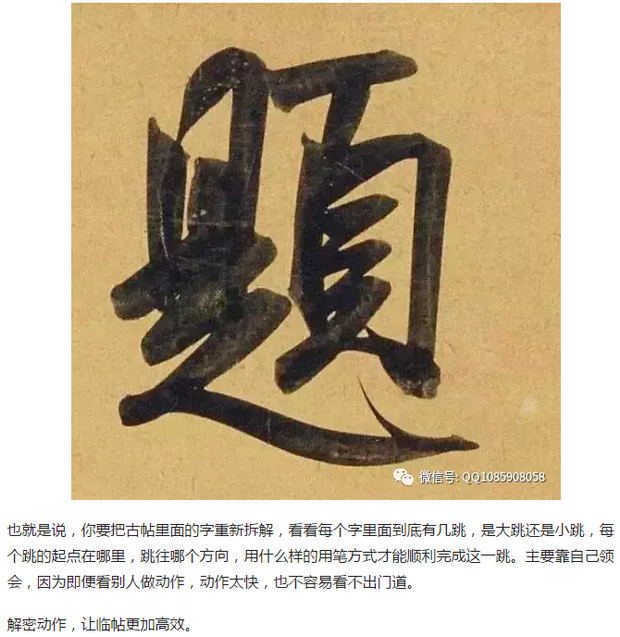 題
微信号: QQ1085908058
也就是说，你要把古帖里面的字重新拆解，看看每个字里面到底有几跳，是大跳还是小跳，每
个跳的起点在哪里，跳往哪个方向，用什么样的用笔方式才能顺利完成这一跳。主要靠自己领
会，因为即便看别人做动作，动作太快，也不容易看不出门道。
解密动作，让临帖更加高效。